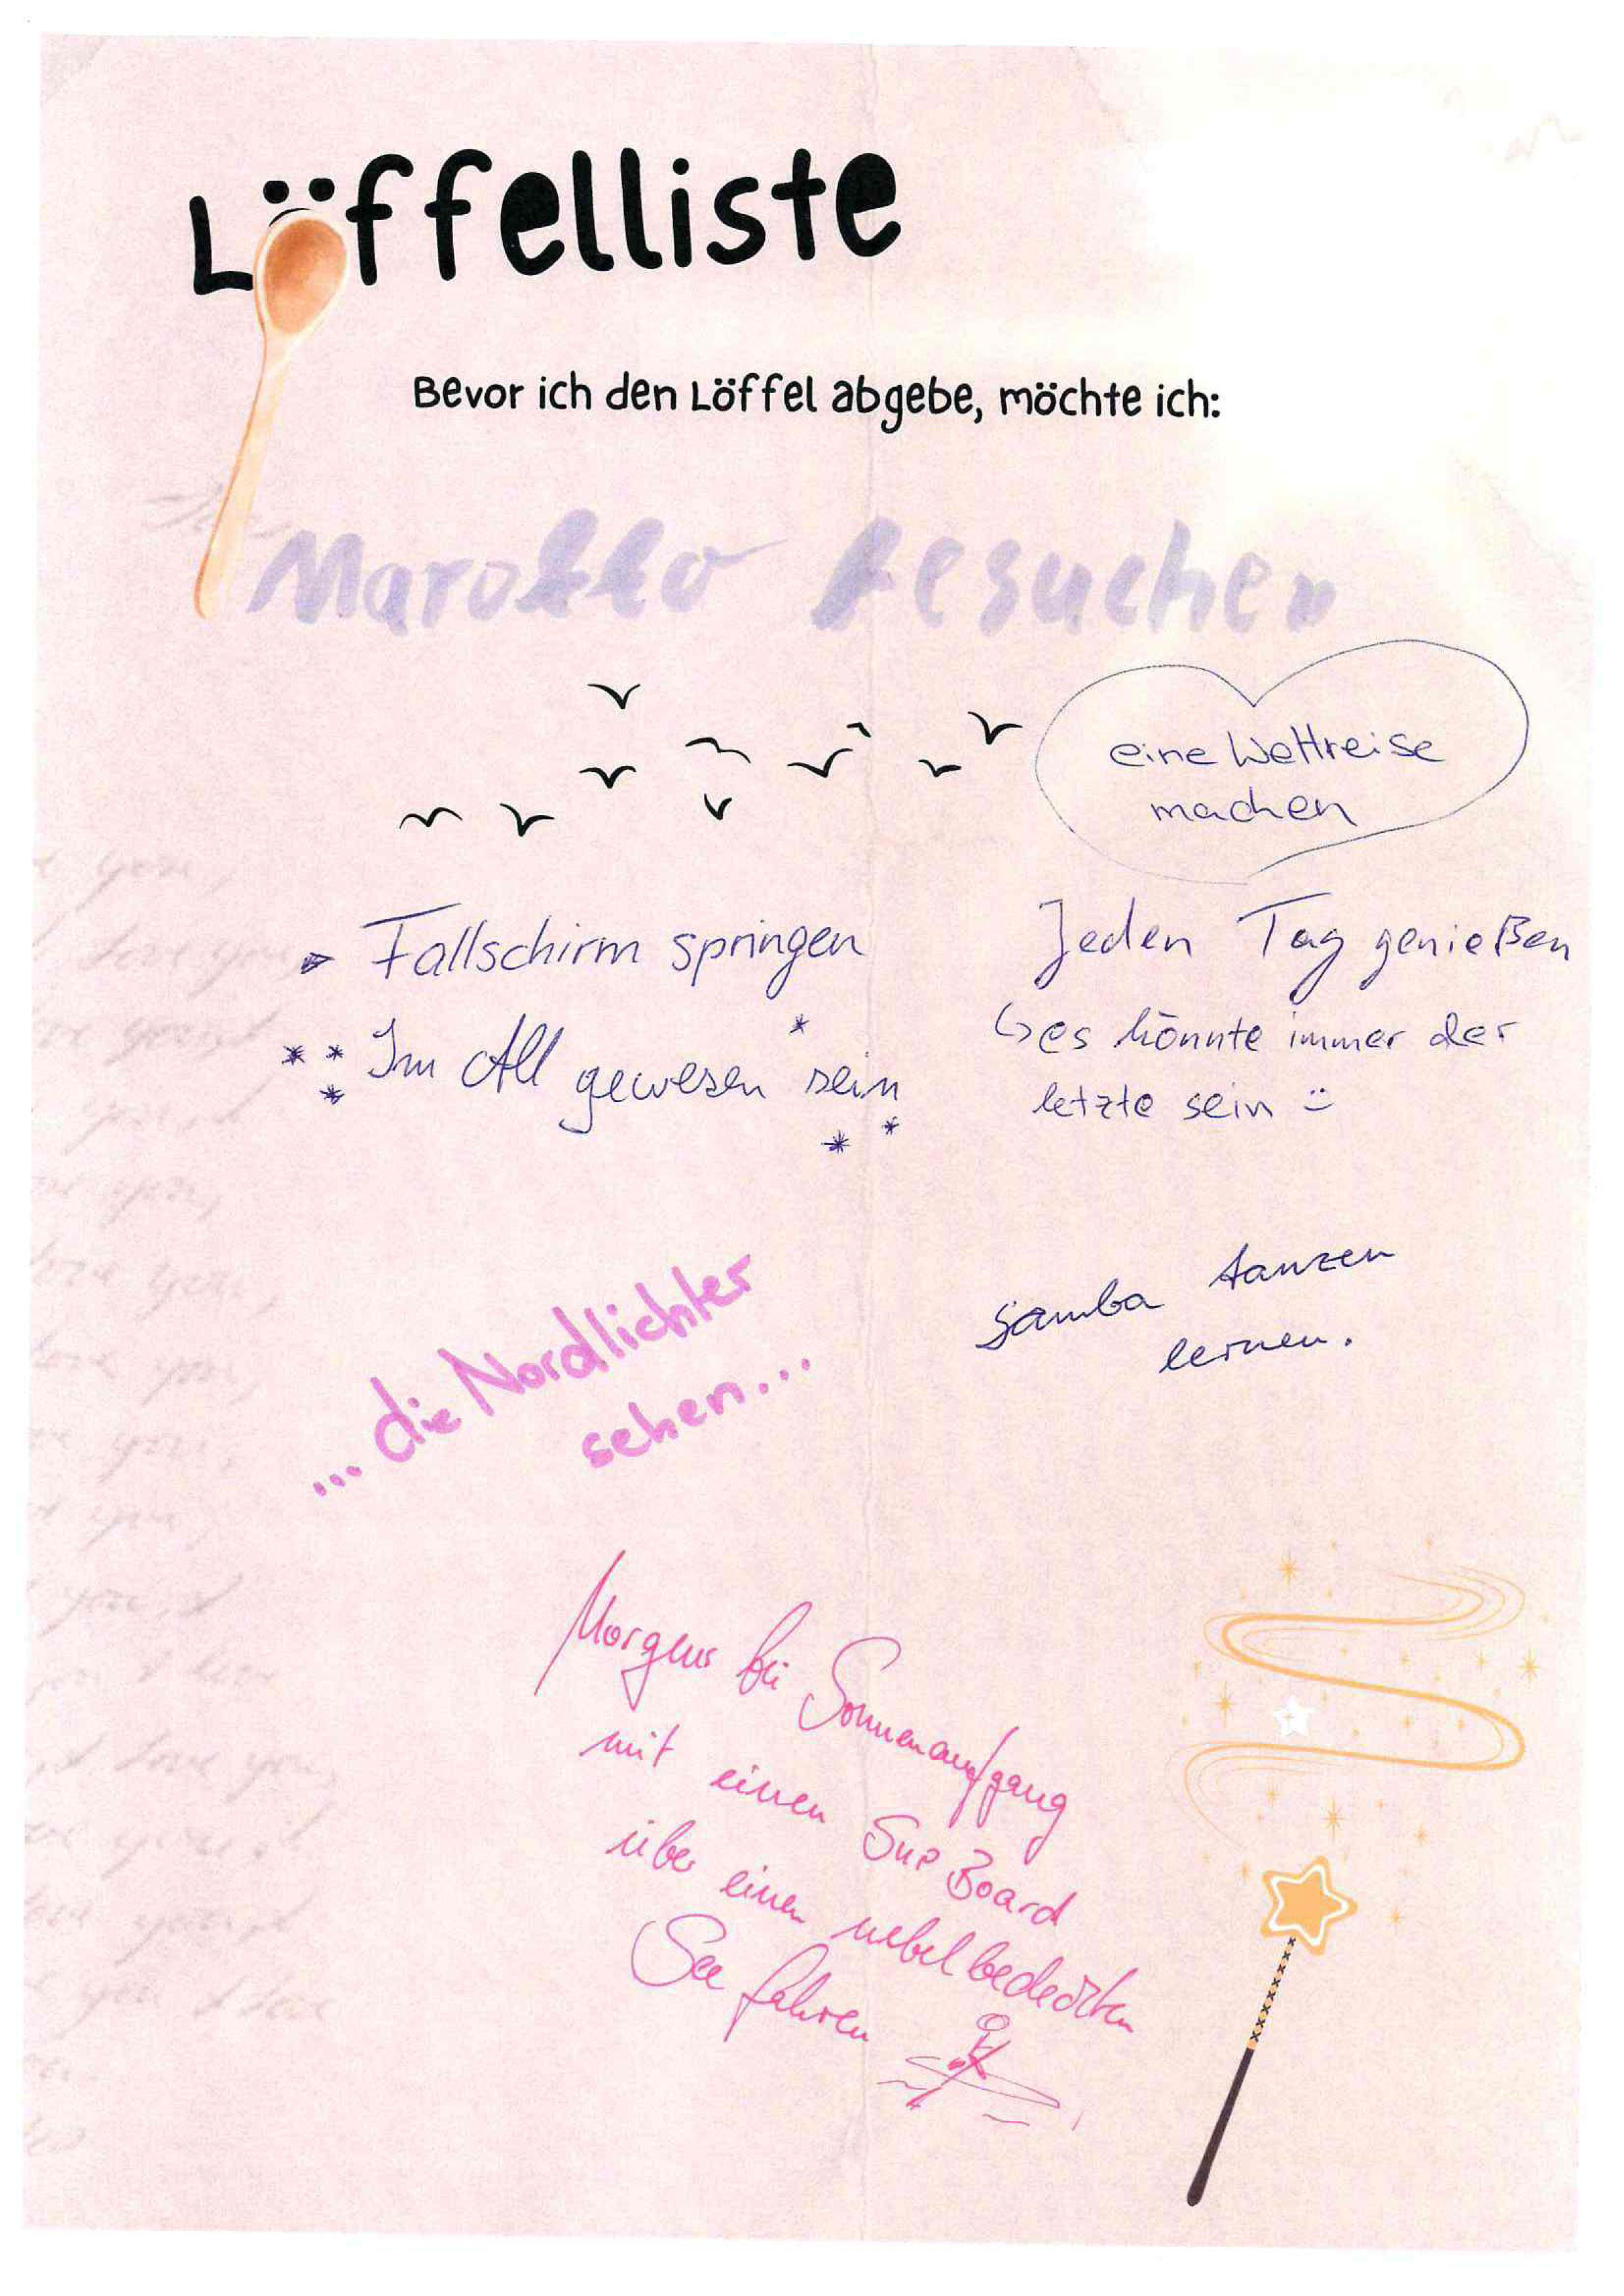 Löffelliste
Bevor ich den Löffel abgebe, möchte ich:
Marokko besuchen
eine Weltreise
machen
Fallschirm springen
Im All gewesen sein
Jeden Tag genießen
↳ es könnte immer der
letzte sein :)
... die Nordlichter
sehen...
Samba tanzen
lernen.
Morgens bei Sonnenaufgang
mit einen Sup Board
über einen nebelbedeckten
See fahren